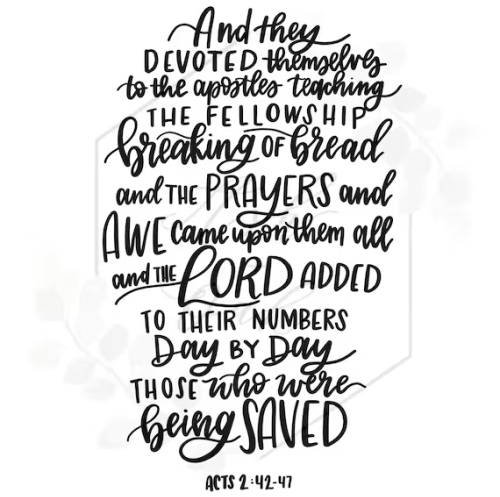 And they
DEVOTED themselves
to the apostles teaching
THE FELLOWSHIP
breaking OF bread
and THE PRAYERS and
AWE came upon them all
and THE LORD ADDED
TO THEIR NUMBERS
Day BY Day
THOSE who were
being SAVED
ACTS 2:42-47